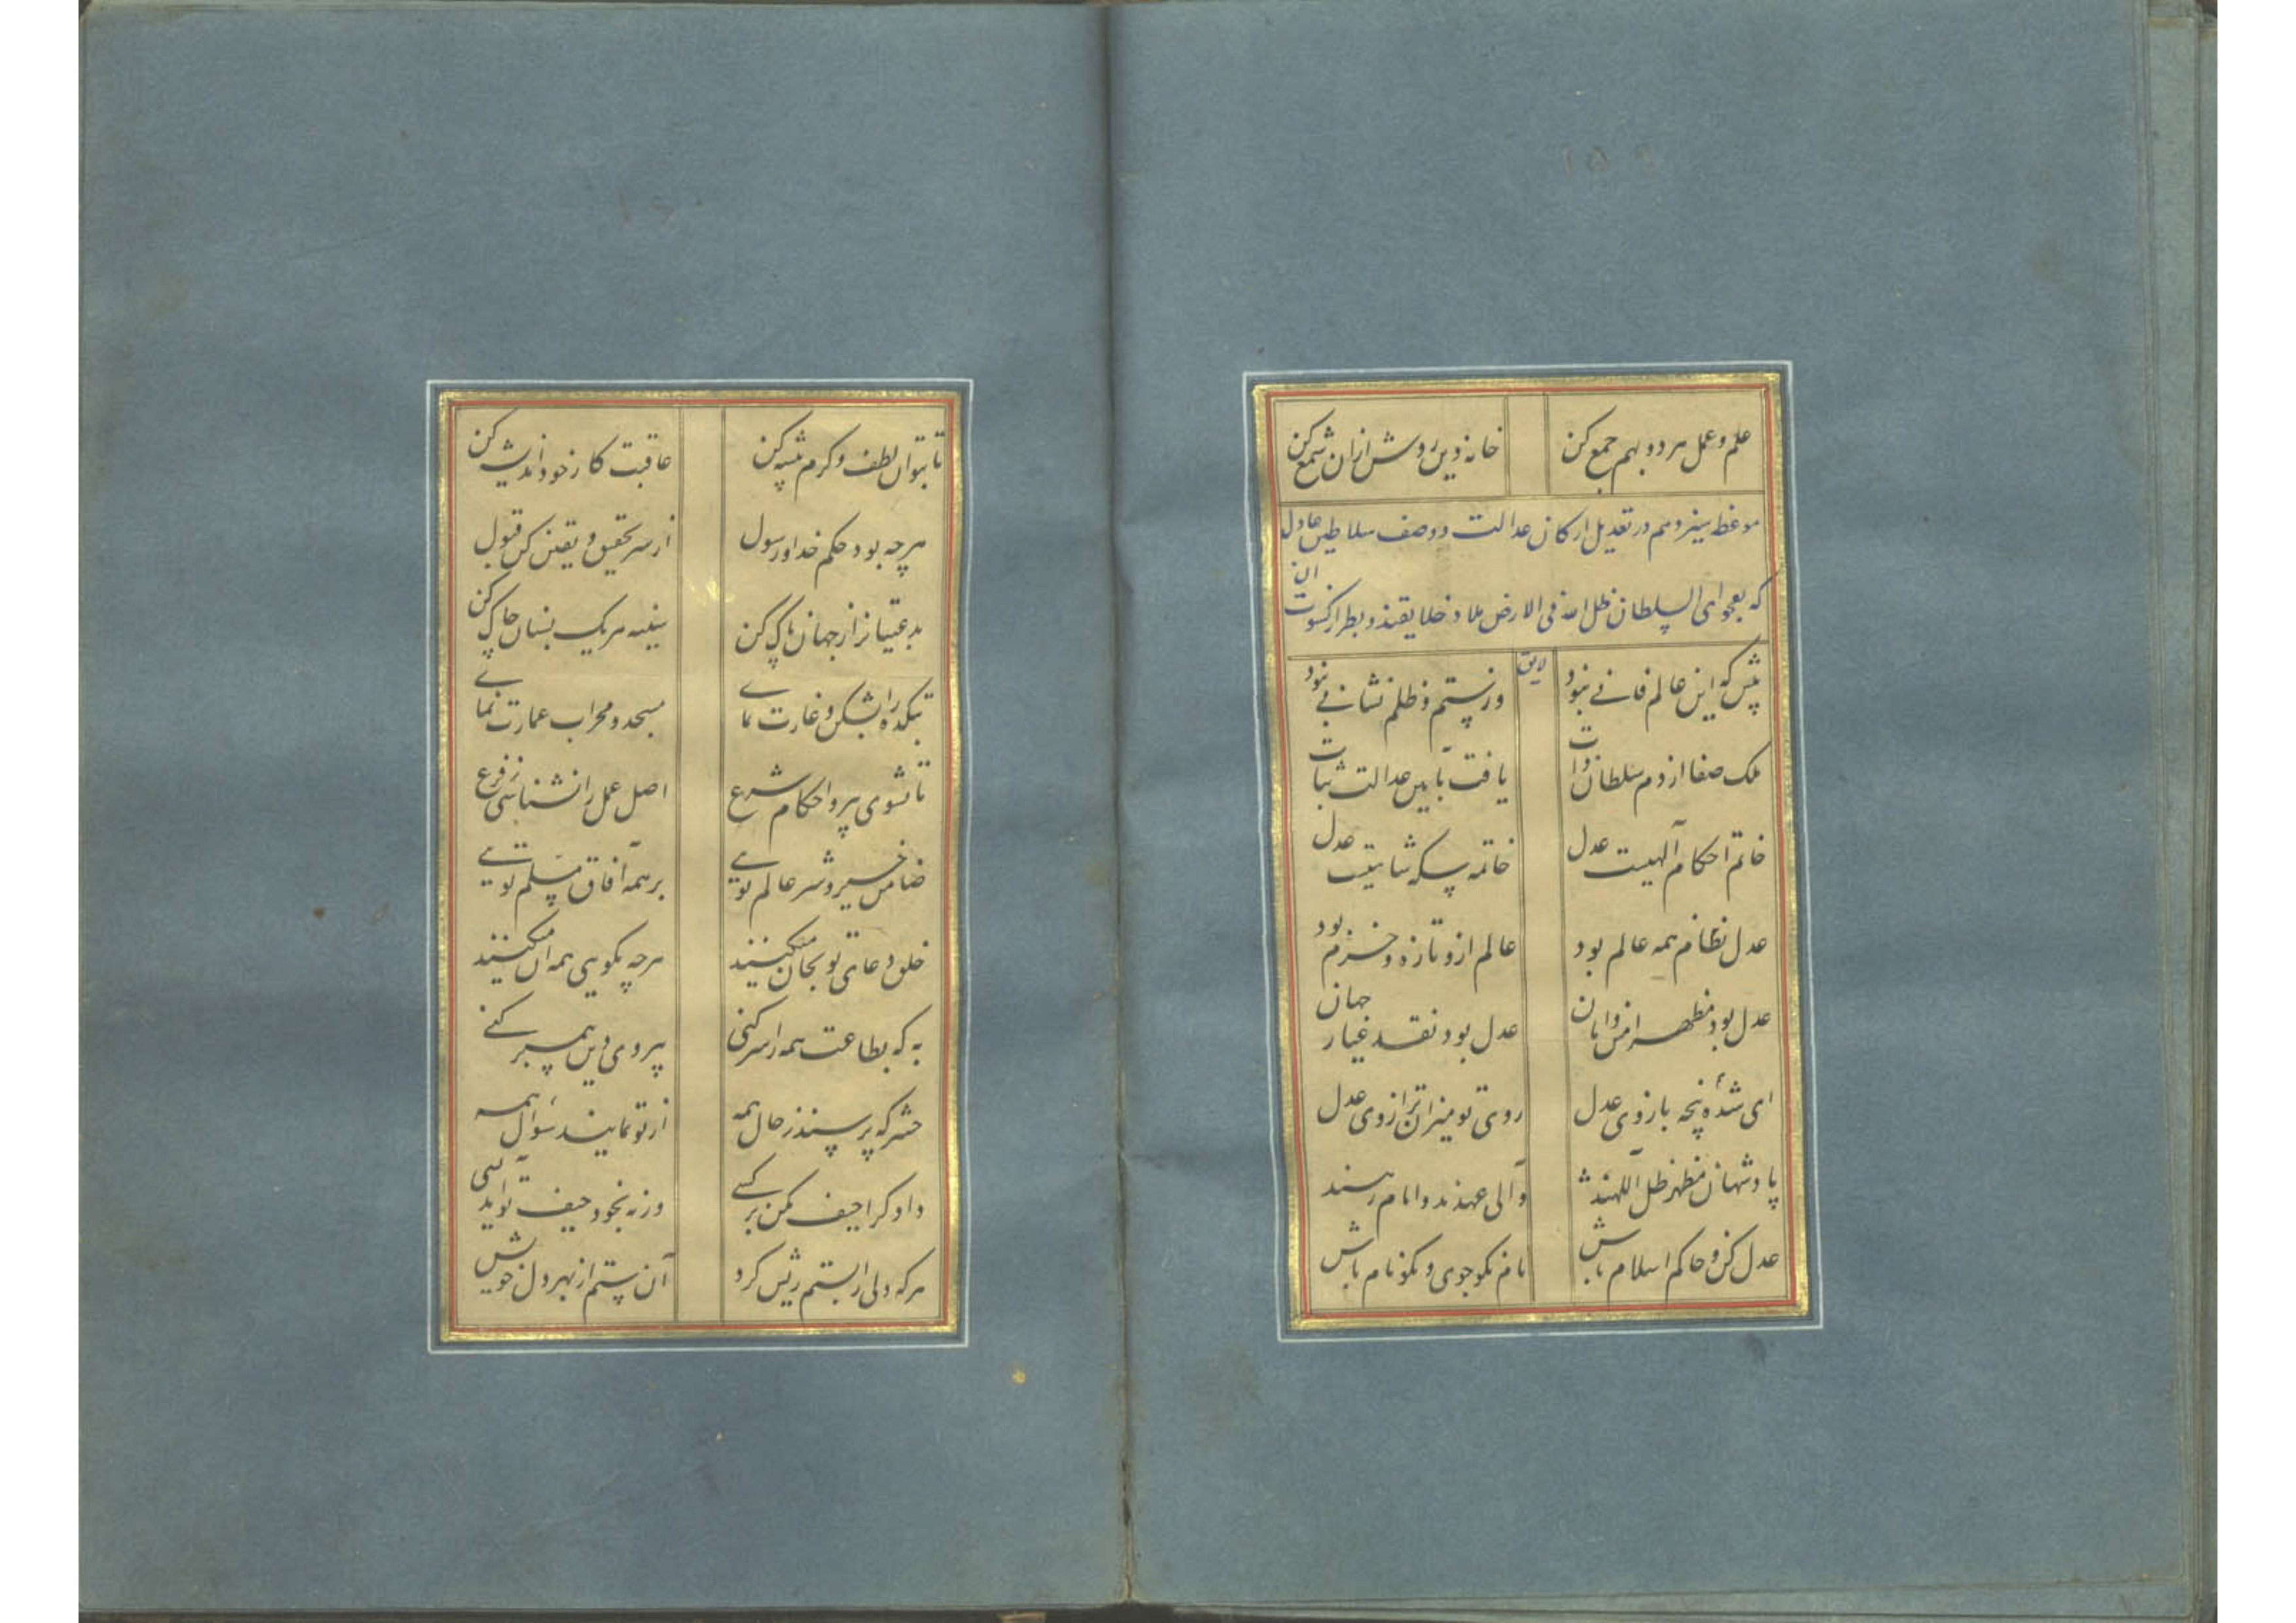 علم و عمل هر دو بهم جمع کن خانه دین روشن ازان شمع کن
موعظه سیزدهم در تعدیل ارکان عدالت و وصف سلاطین عادل
که بفحوای السلطان ظل الله فی الارض ملاذ خلایقند و بطراز کسوت آن
لایق
پیش که این عالم فانی نبود وز ستم و ظلم نشانی نبود
ملک صفا از دم سلطان ذات یافت بآیین عدالت ثبات
خاتم احکام آلهیست عدل خاتمه سکه شاهیست عدل
عدل نظام همه عالم بود عالم ازو تازه و خرم بود
عدل بود مظهر امن و امان عدل بود نقد عیار جهان
ای شده پنجه بازوی عدل روی تو میزان ترازوی عدل
پادشهان مظهر ظل آللهند والی عهدند و امام رهند
عدل کن و حاکم اسلام باش نام نکو جوی و نکو نام باش
تا بتوان لطف و کرم پیشه کن عاقبت کار خود اندیشه کن
هرچه بود حکم خدا و رسول از سر تحقیق و یقین کن قبول
بدعتیانرا ز جهان پاک کن سینه هریک بسنان چاک کن
بتکده را بشکن و غارت نمای مسجد و محراب عمارت نمای
تا نشوی پیرو احکام شرع اصل عمل را نشناسی ز فرع
ضامن خیر و شر عالم تویی بر همه آفاق مسلم تویی
خلق دعای تو بجان میکنند هرچه بگویی همه آن میکنند
به که بطاعت همه را سر کنی پیروی دین پیمبر کنی
حشر که پرسند ز حال همه از تو نمایند سؤال همه
دادگرا حیف مکن بر کسی ورنه بخود حیف تو آید بسی
هرکه دلی را بستم ریش کرد آن ستم از بهر دل خویش